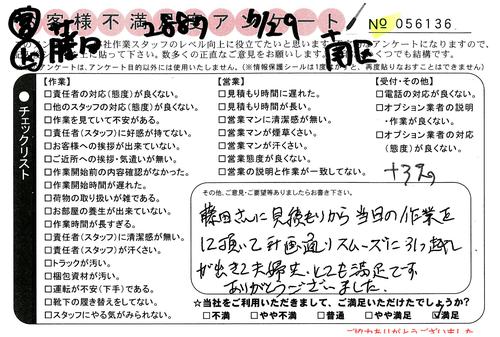 お客様不満足度アンケート
2889 7/29
No 056136
南区
社作業スタッフのレベル向上に役立てたいと思い
アンケートになりますので、
上に貼って下さい。数多くの率直なご意見をお願い
アンケートは、アンケート目的以外には使用いたしません。(※情報保護シールは1度はがすと、再度貼りなおすことはできません)
チェックリスト
【作業】
□責任者の対応(態度)が良くない。
□他のスタッフの対応(態度)が良くない。
□作業を見ていて不安がある。
□責任者(スタッフ)に好感が持てない。
□お客様への挨拶が出来ていない。
□ご近所への挨拶・気遣いが無い。
□作業開始前の内容確認がなかった。
□作業開始時間が遅れた。
□荷物の取り扱いが雑である。
□お部屋の養生が出来ていない。
□作業時間が長すぎる。
□責任者(スタッフ)に清潔感が無い。
□責任者(スタッフ)が汗くさい。
□トラックが汚い。
□梱包資材が汚い。
□運転が不安(下手)である。
□靴下の履き替えをしてない。
□スタッフにやる気がみられない。
【営業】
□見積もり時間に遅れた。
□見積もり時間が長い。
□営業マンに清潔感が無い。
□営業マンが煙草くさい。
□営業マンが汗くさい。
□営業態度が良くない。
□営業の説明と作業が一致してない。
【受付・その他】
□電話の対応が良くない。
□オプション業者の説明
・作業が良くない。
□オプション業者の対応
(態度)が良くない。
その他、ご意見・ご要望等ありましたらお書き下さい。
藤田さんに見積もりから当日の作業迄
して頂いて計画通りスムーズに引っ越し
が出来て夫婦共とても満足です
ありがとうございました。
☆当社をご利用いただきまして、ご満足いただけたでしょうか?
□不満 □やや不満 □普通 □やや満足 ☑満足
ご協力ありがとうございました